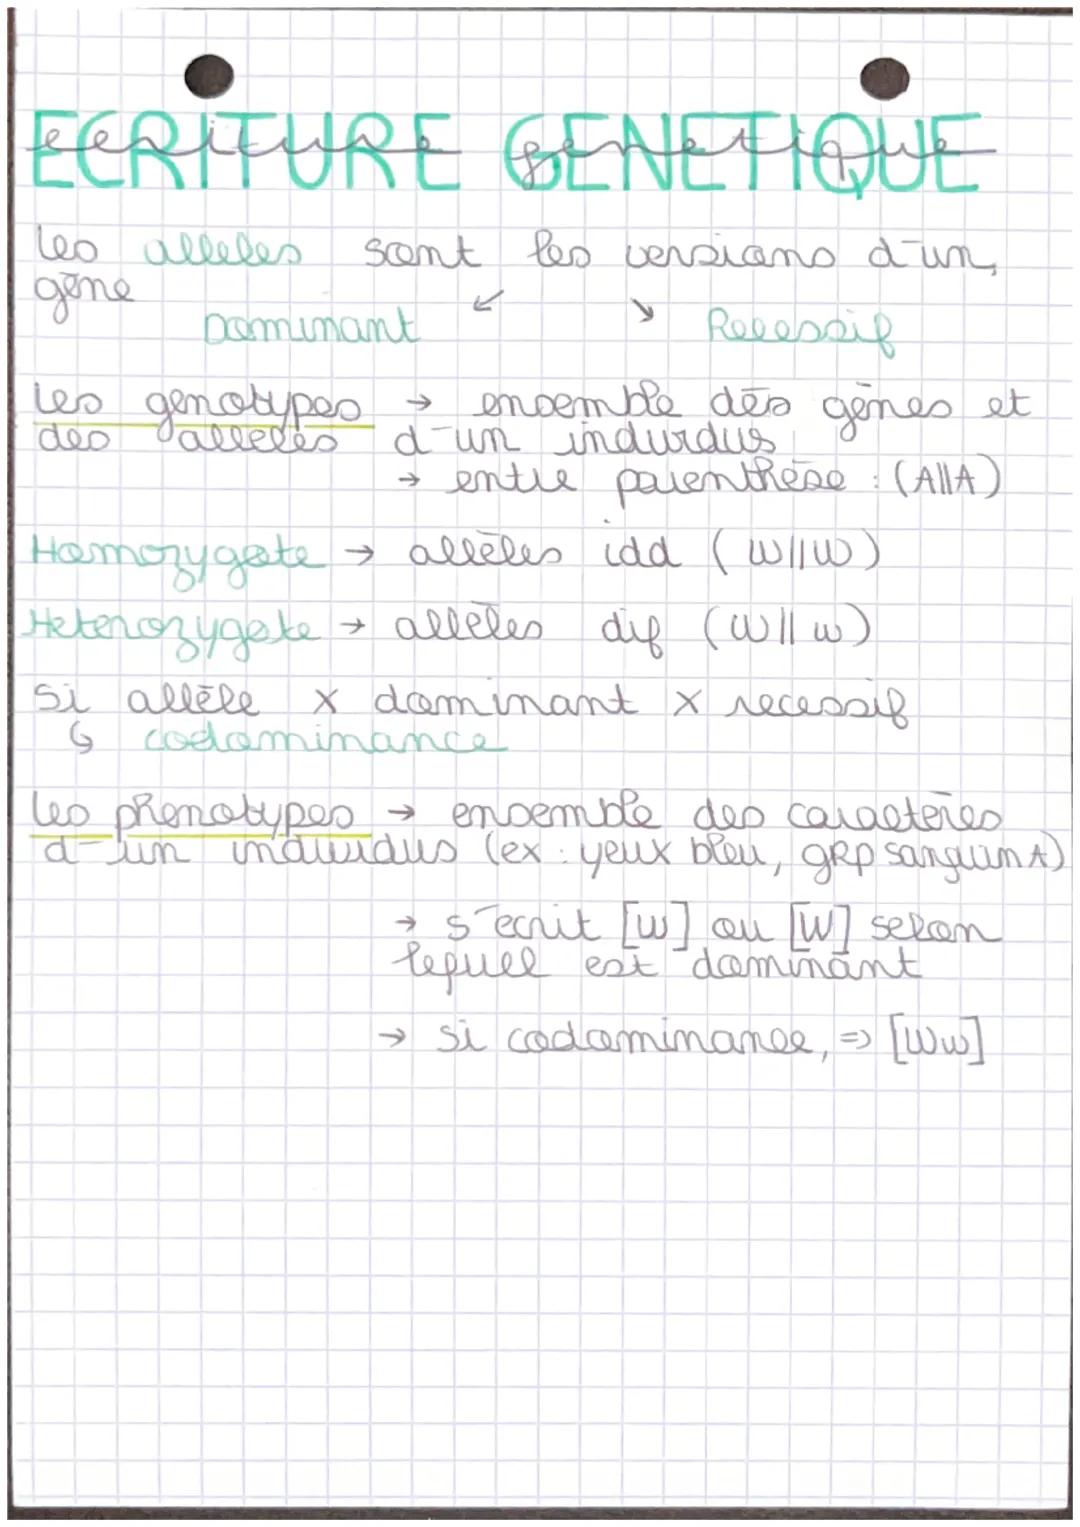 ECRITURE GENETIQUE
ecriture genetique
les alleles sont les versions d'un
gène
Dominant ↙ ↘ Recessif
les génotypes → ensemble des gènes et
des alleles d'un individus
→ entre parenthèse : (A||A)
Homozygote → allèles idd (W||W)
Heterozygote → allèles dif (W||w)
si allèle X dominant X recessif
↳ codominance
les phenotypes → ensemble des caractères
d'un individus (ex : yeux bleu, gRp sanguin A)
→ s'ecrit [w] ou [W] selon
lequel est dominant
→ si codominance, => [Ww]